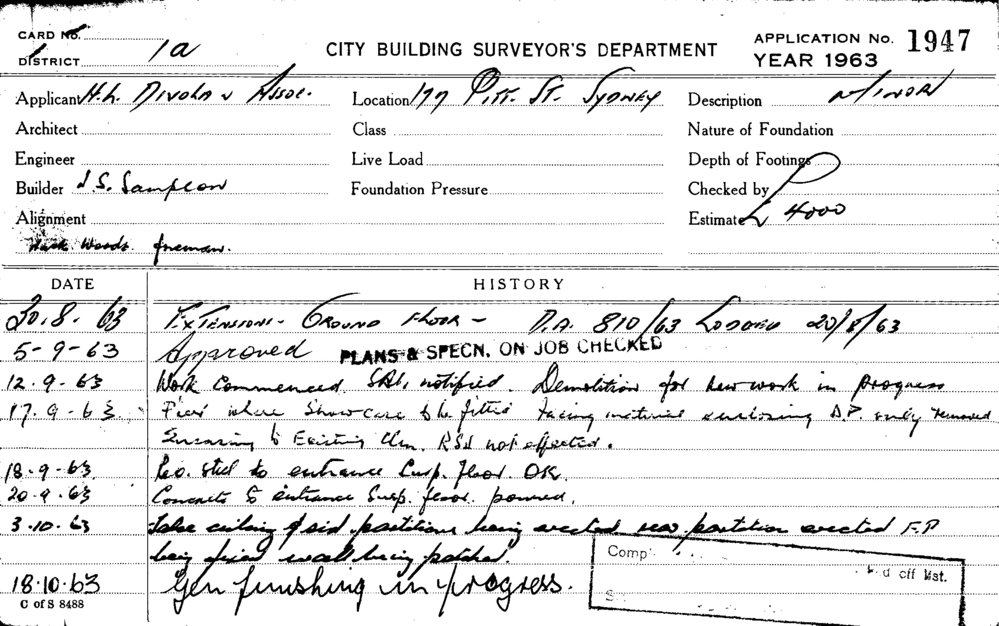 CARD No.
DISTRICT 1a
CITY BUILDING SURVEYOR'S DEPARTMENT
APPLICATION No. 1947
YEAR 1963
Applicant H.L. Divola & Assoc. Location 177 Pitt. St. Sydney Description Minor
Architect Class Nature of Foundation
Engineer Live Load Depth of Footings
Builder J.S. Sampson Foundation Pressure Checked by
Alignment Estimate £ 4000
Woods foreman.
DATE HISTORY
20.8.63 Extensions - Ground Floor - D.A. 810/63 Lodged 20/8/63
5-9-63 Approved PLANS & SPECN. ON JOB CHECKED
12.9.63 Work Commenced notified. Demolition for new work in progress
17.9.63 Pier where Showcase to be fitted facing material enclosing D.P. only removed
to Existing RSJ not effected.
18.9.63 steel to entrance Susp. floor. OK.
20.9.63 Concrete to entrance Susp. floor poured.
3.10.63 False ceiling partitions being erected new partition erected F.P
being fixed wall being patched.
18.10.63 Gen finishing in progress.
C of S 8488
Comp
off list.
S